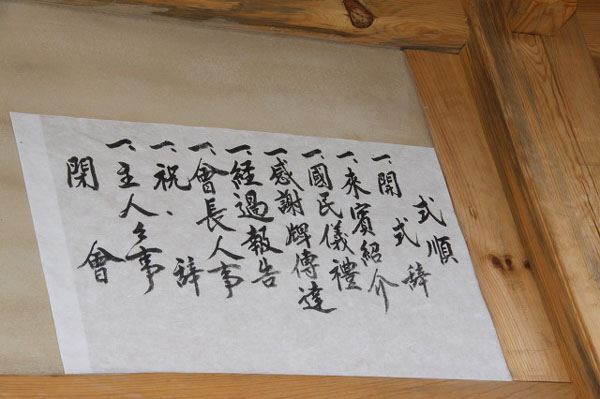 式順
一、開式辞
一、來賓紹介
一、國民儀禮
一、感謝牌傳達
一、経過報告
一、會長人事
一、祝、辞
一、主人人事
閉會